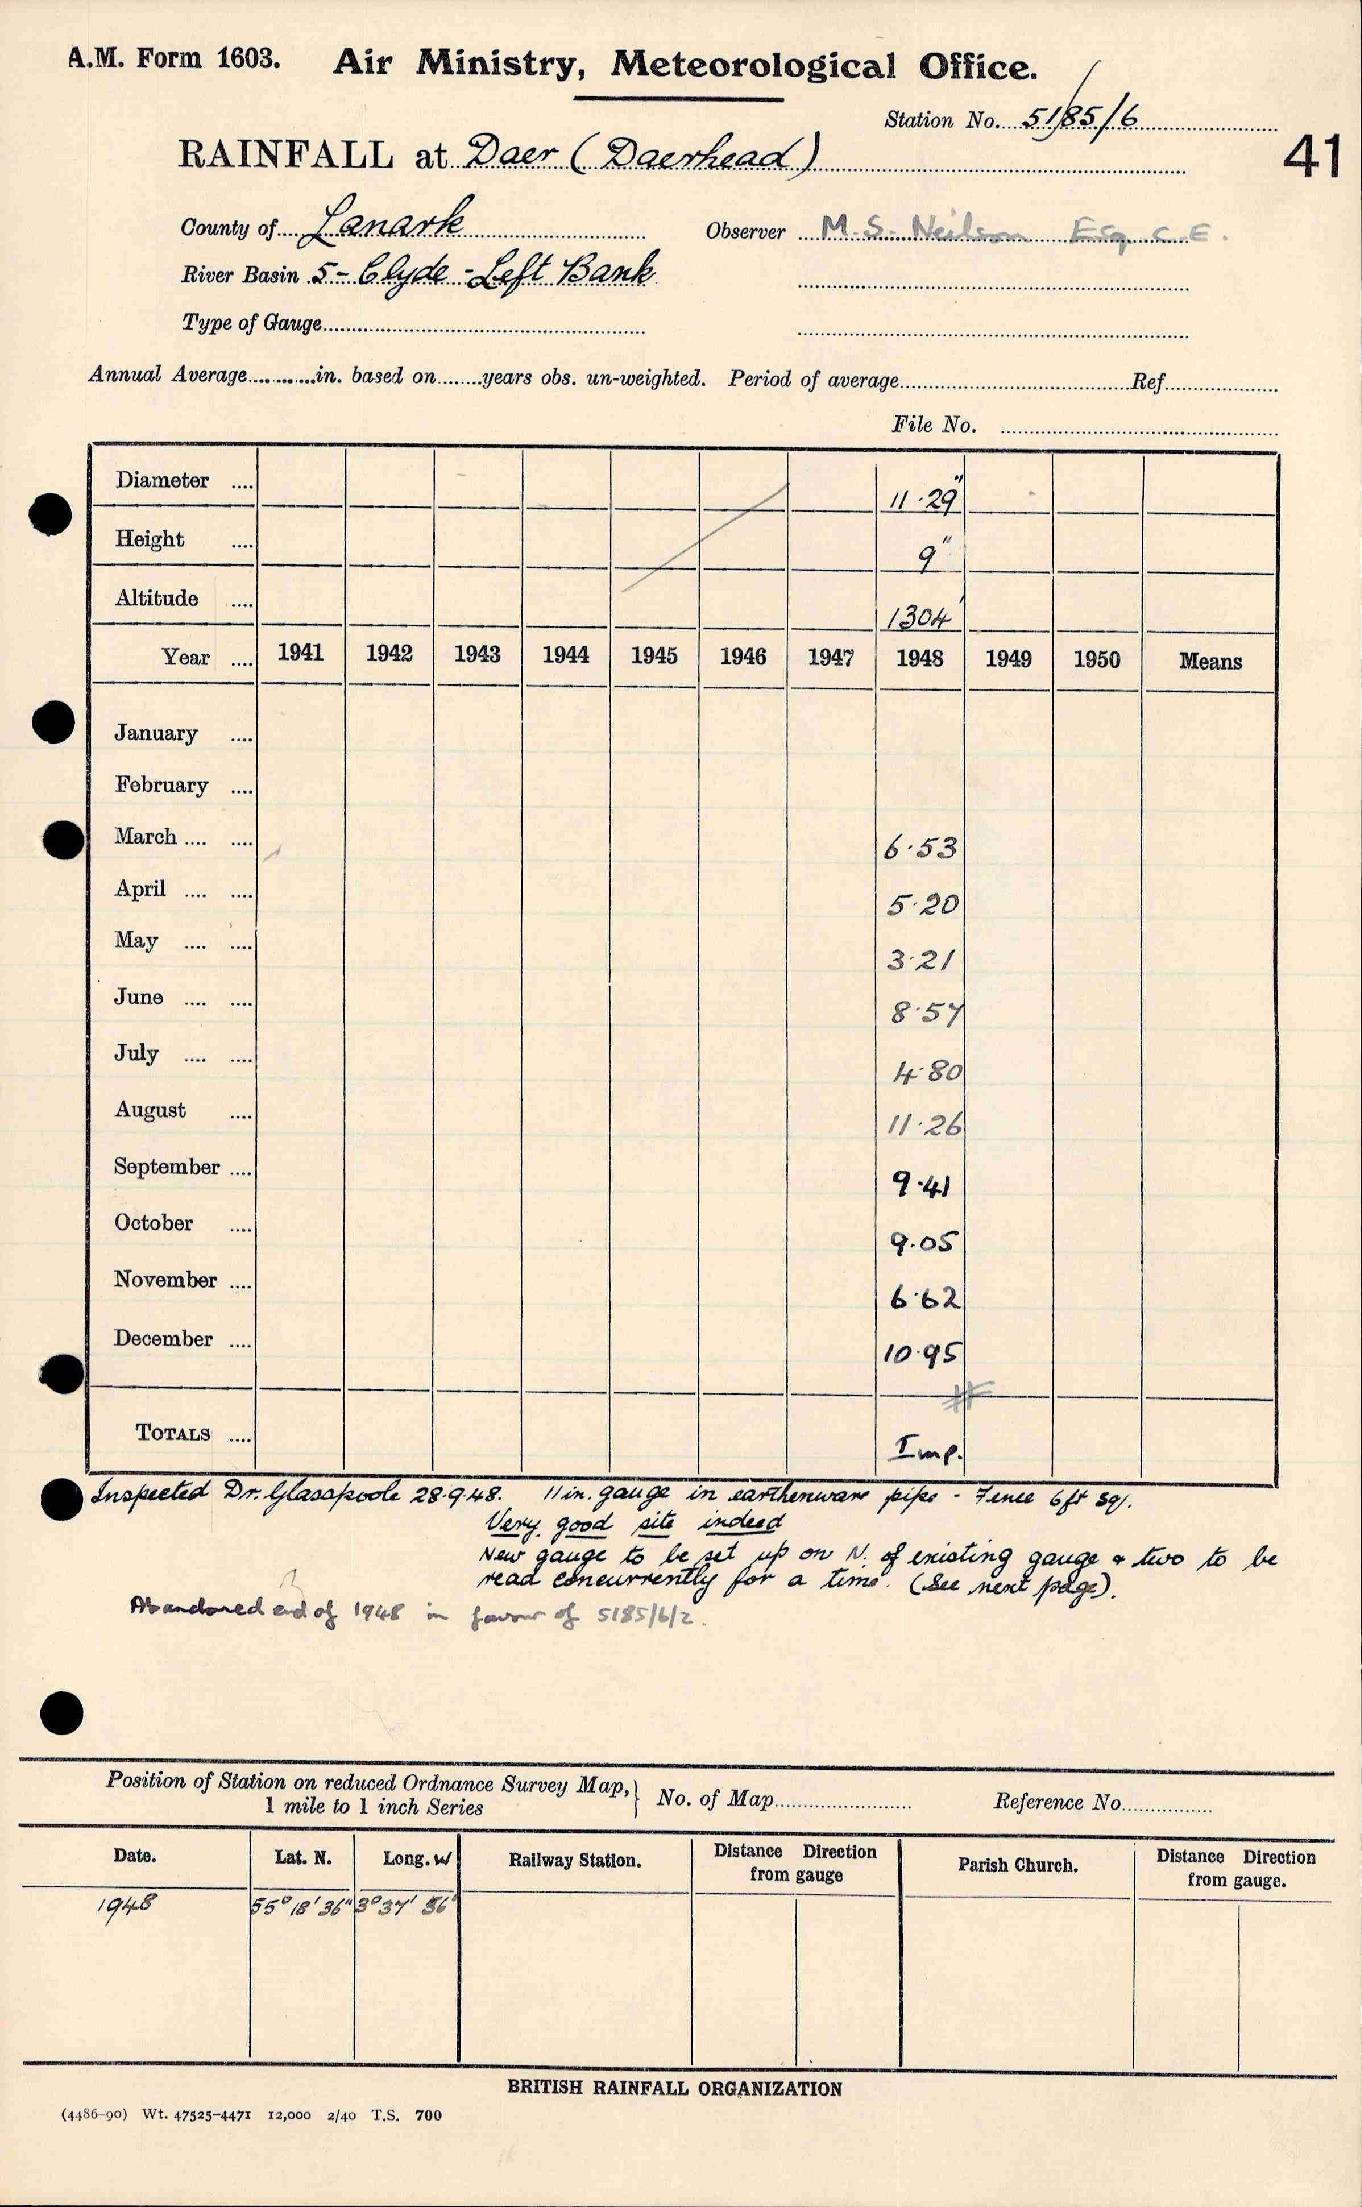 A.M. Form 1603. Air Ministry, Meteorological Office.
Station No. 5185/6
RAINFALL at Daer (Daerhead)
41
County of Lanark Observer M. S. Neilson Esq C.E.
River Basin 5 - Clyde - Left Bank
Type of Gauge
Annual Average in. based on years obs. un-weighted. Period of average Ref
File No.
Diameter 11.29"
Height 9"
Altitude 1304'
Year 1941 1942 1943 1944 1945 1946 1947 1948 1949 1950 Means
January
February
March 6.53
April 5.20
May 3.21
June 8.57
July 4.80
August 11.26
September 9.41
October 9.05
November 6.62
December 10.95
#
TOTALS Imp.
Inspected Dr. Glasspoole 28.9.48. 11 in. gauge in earthenware pipe - Fence 6ft sq.
Very good site indeed
New gauge to be set up on N. of existing gauge & two to be
read concurrently for a time. (See next page).
Abandoned end of 1948 in favour of 5185/6/2.
Position of Station on reduced Ordnance Survey Map, } No. of Map Reference No.
1 mile to 1 inch Series
Date. Lat. N. Long. W Railway Station. Distance Direction from gauge Parish Church. Distance Direction from gauge.
1948 55° 18' 36" 3° 37' 56"
BRITISH RAINFALL ORGANIZATION
(4486-90) Wt. 47525-4471 12,000 2/40 T.S. 700